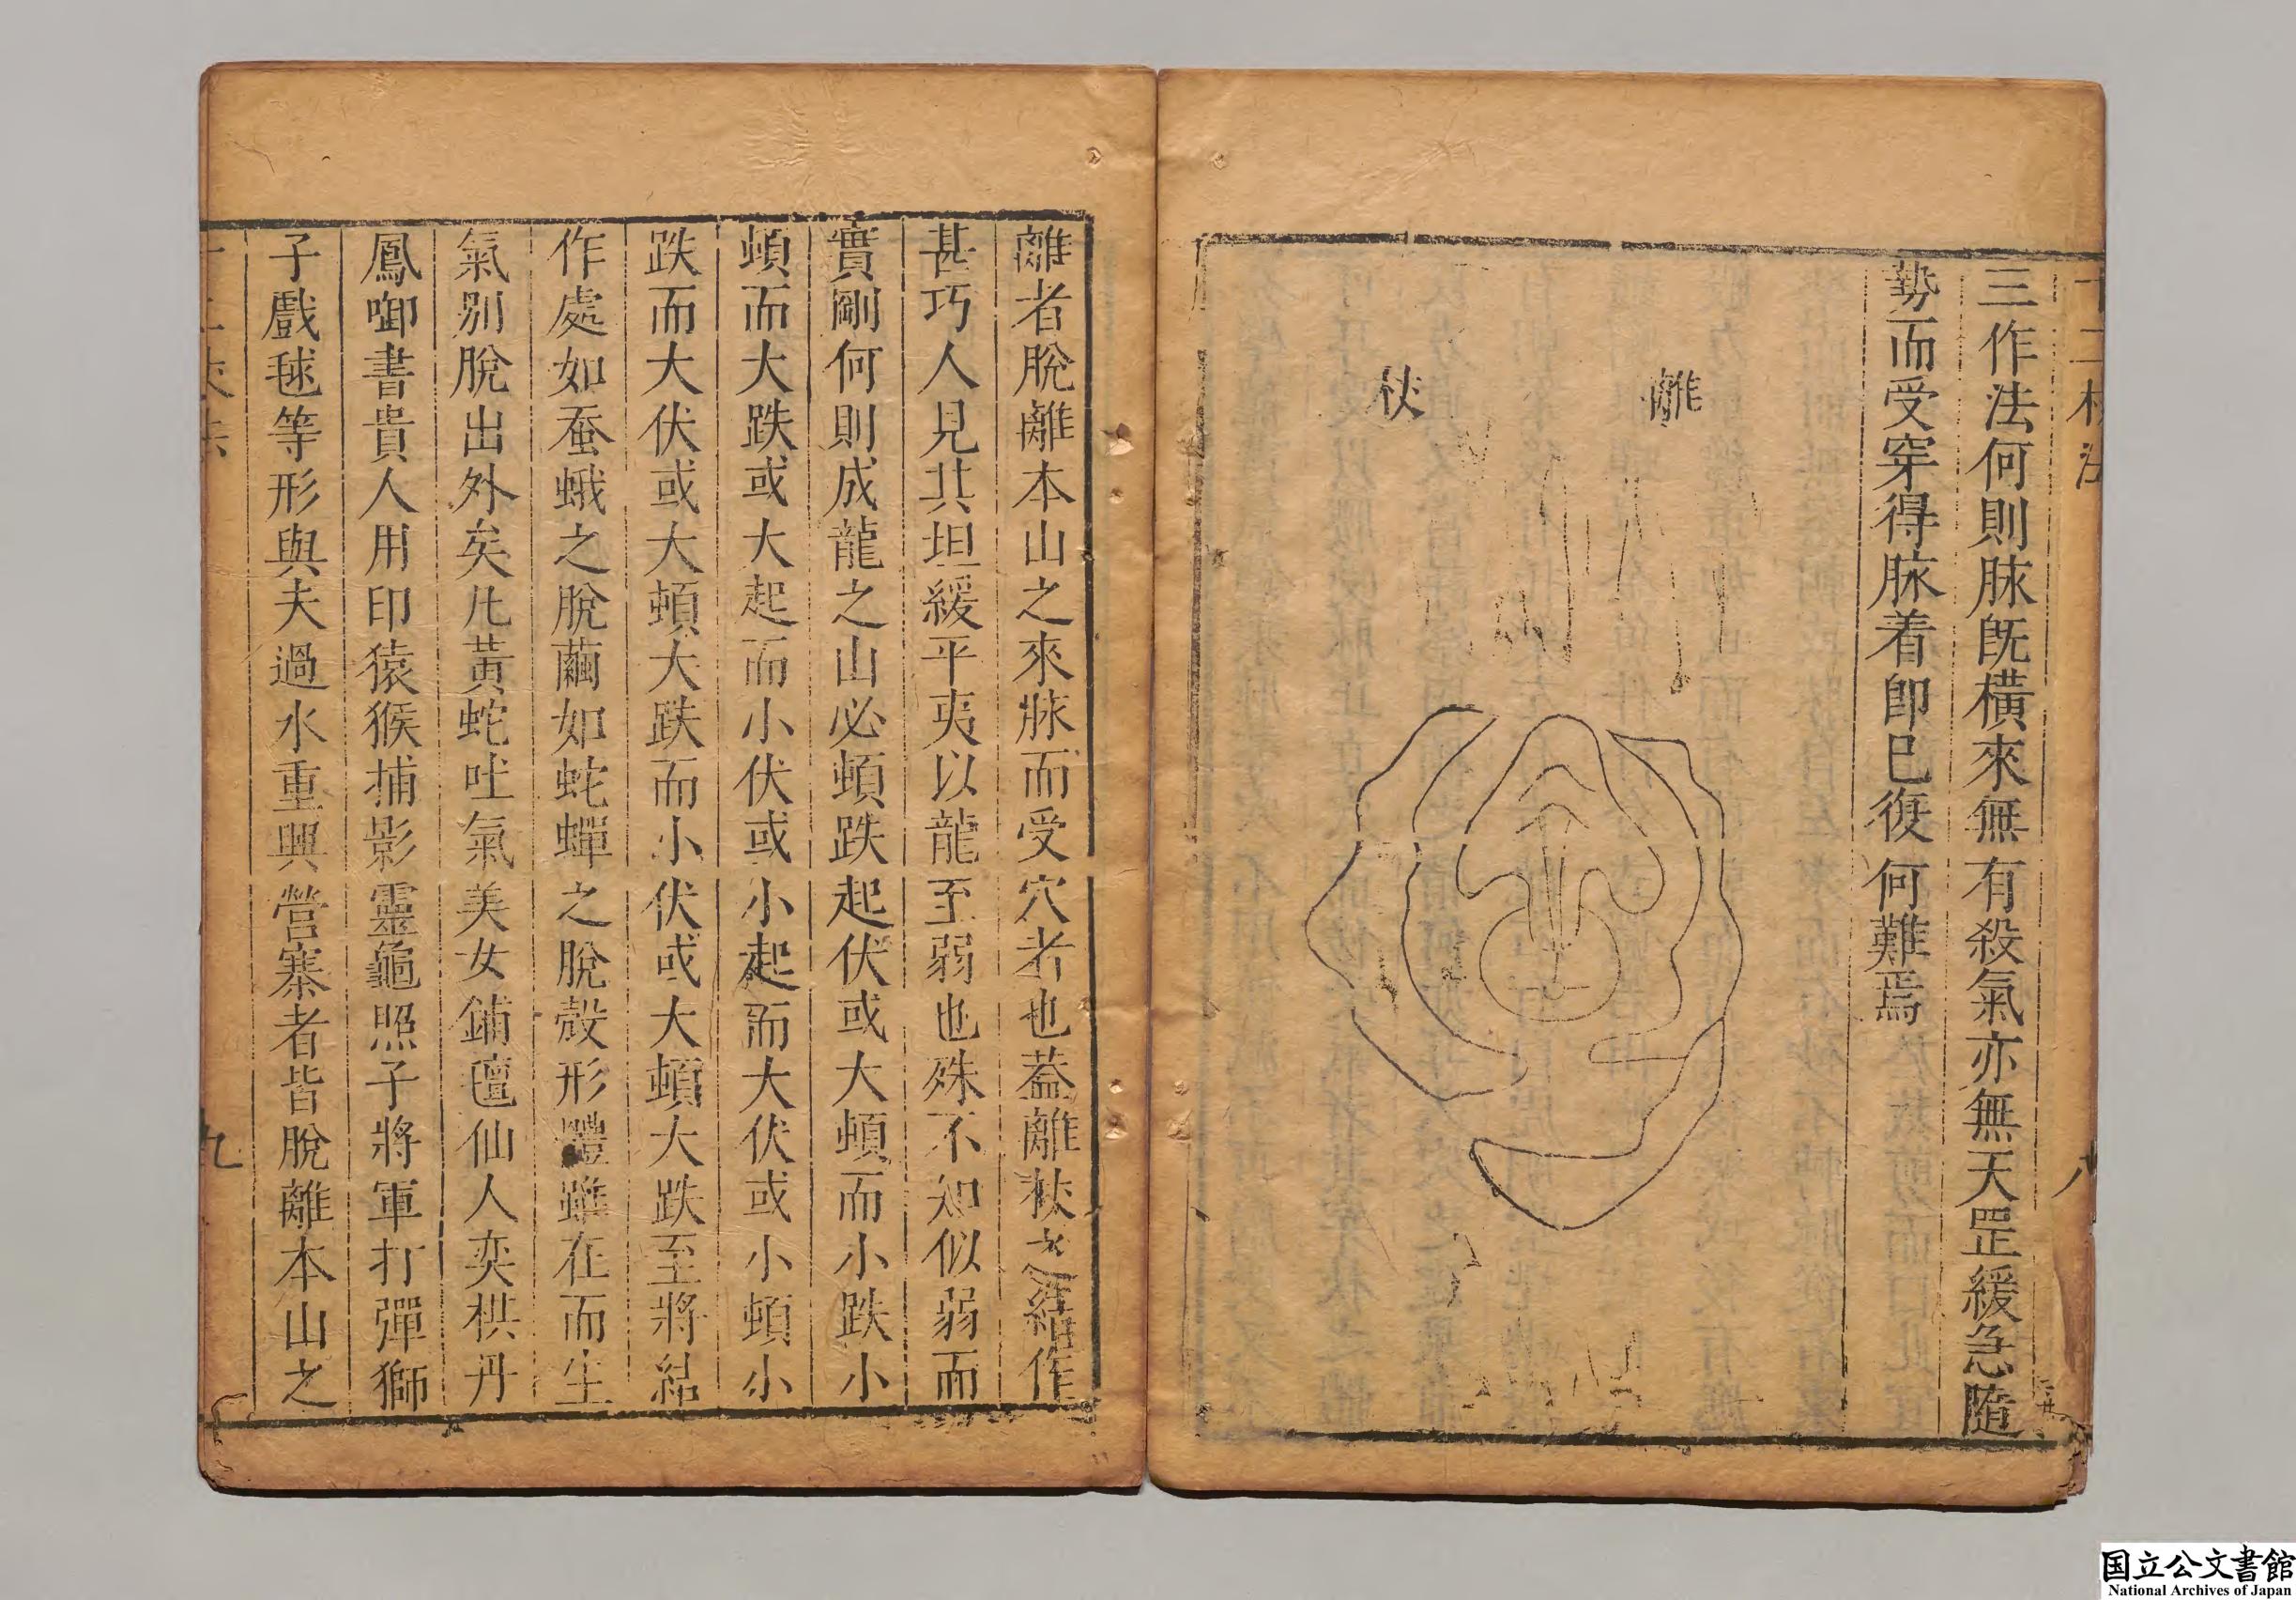 十二杖法
三作法何則脉既橫來無有殺氣亦無天罡緩急隨
勢而受穿得脉着即巳復何難焉
離
杖
八
離者脫離本山之來脉而受穴者也葢離杖之結作
甚巧人見其坦緩平夷以龍至弱也殊不知似弱而
實剛何則成龍之山必頓跌起伏或大頓而小跌小
頓而大跌或大起而小伏或小起而大伏或小頓小
跌而大伏或大頓大跌而小伏或大頓大跌至將結
作處如蚕蛾之脫繭如蛇蟬之脫殼形體雖在而生
氣别脫出外矣凡黃蛇吐氣美女鋪氊仙人奕棋丹
鳳啣書貴人用印猿猴捕影靈龜照子將軍打彈獅
子戲毬等形與夫過水重興營寨者皆脫離本山之
十二杖法
九
国立公文書館
National Archives of Japan